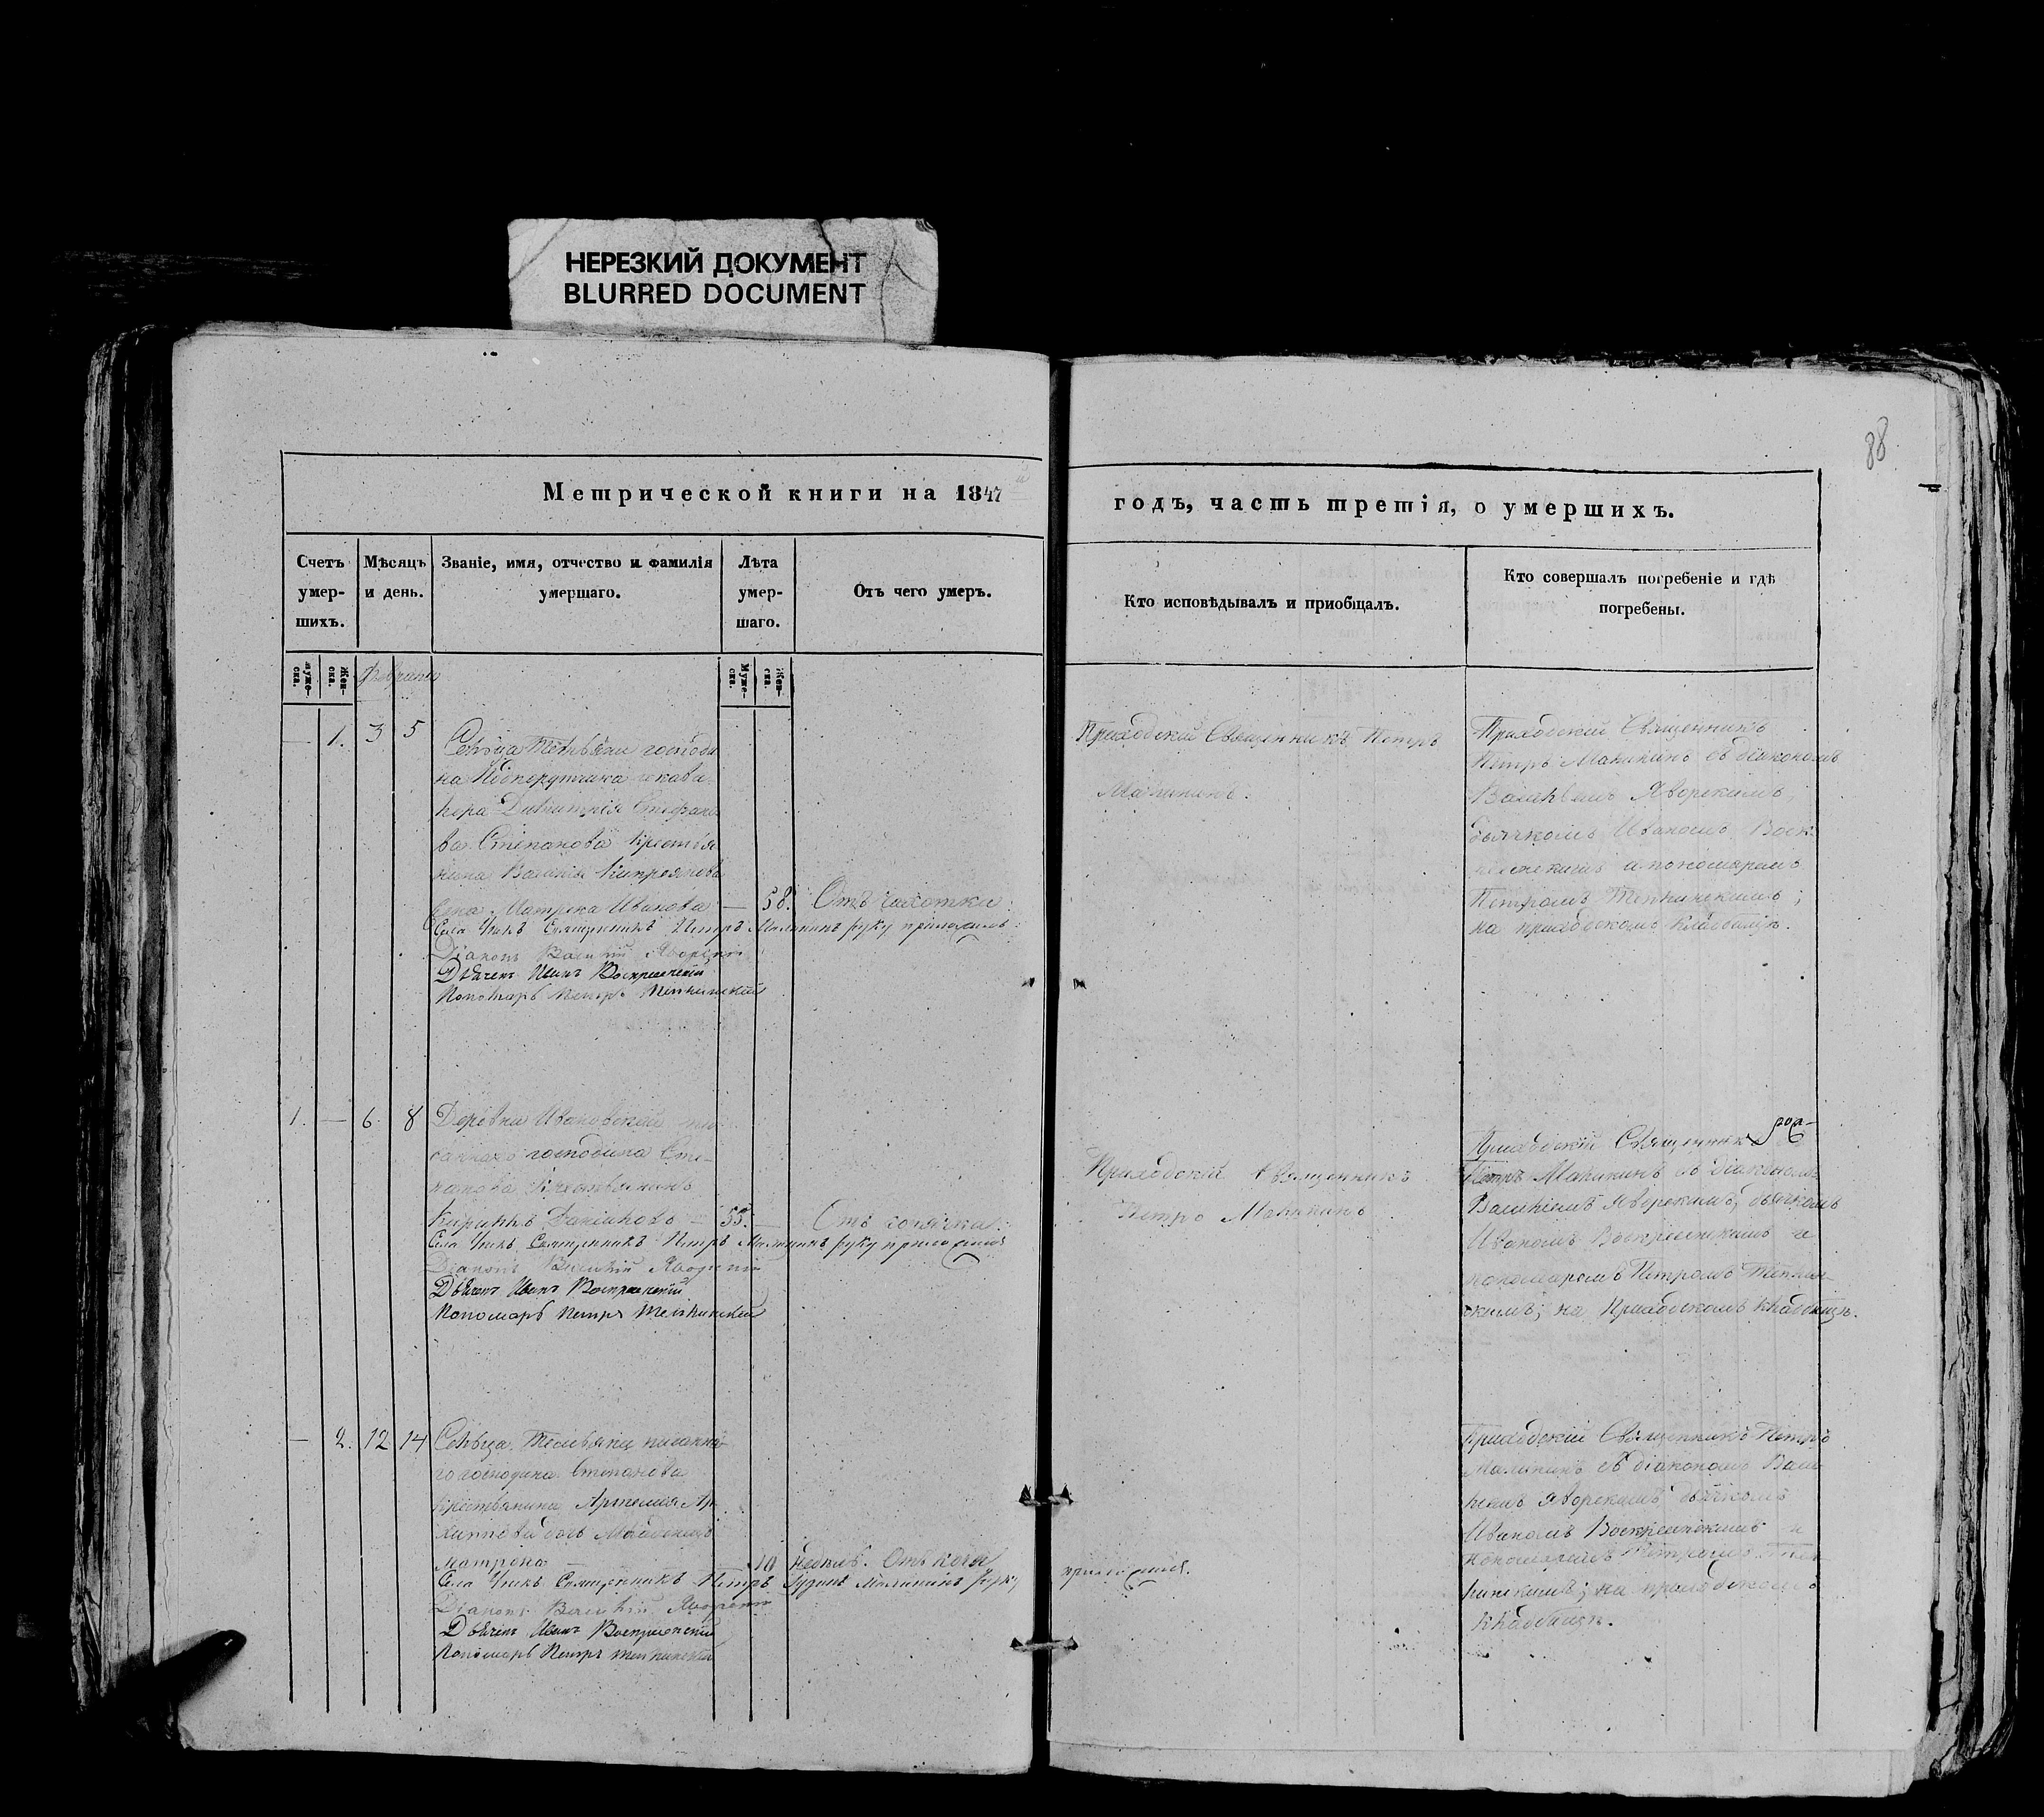 НЕРЕЗКИЙ ДОКУМЕНТ
BLURRED DOCUMENT
88
Метрической книги на 1847
годъ, часть третія, о умершихъ.
Счетъ умер-шихъ.
Мѣсяцъ и день.
Званіе, имя, отчество и фамилія умершаго.
Лѣта умер-шаго.
Отъ чего умеръ.
Кто исповѣдывалъ и приобщалъ.
Кто совершалъ погребеніе и гдѣ погребены.
Муже-ска.
Жен-ска.
Муже-ска.
Жен-ска.
— 1. 3 5
Сельца господи
на Подпорутчика и кава
лера Димитрія Стефано
ва Степанова крестья
нина Василія Кипреянова
жена Матрена Иванова — 58. Отъ чахотки.
Села Священникъ Петръ Малининъ руку приложилъ
Діаконъ Василій Яворскій
Дьячекъ Иванъ Воскресенскій
Пономарь Петръ
Приходскій Священникъ Петръ
Малининъ.
Приходскій Священникъ
Петръ Малининъ съ діакономъ
Василіемъ Яворскимъ,
дьячкомъ Иваномъ Воск-
ресенскимъ и пономаремъ
Петромъ
на приходскомъ кладбищѣ.
1. — 6. 8 Деревни Ивановской
господина Сте-
панова крестьянинъ
Кирилъ Даниловъ — 55. — Отъ горячки.
Села Священникъ Петръ Малининъ руку приложилъ
Діаконъ Василій Яворскій
Дьячекъ Иванъ Воскресенскій
Пономарь Петръ
Приходскій Священникъ
Петръ Малининъ
Приходскій Священникъ
Петръ Малининъ съ діакономъ
Василіемъ Яворскимъ, дьячкомъ
Иваномъ Воскресенскимъ и
пономаремъ Петромъ
скимъ; на приходскомъ кладбищѣ.
— 2. 12 14 Сельца
го господина Степанова
крестьянина Артемія Ар
хипова дочь младенецъ
Матрона — 10 недель. Отъ
Села Священникъ Петръ Малининъ руку
приложилъ.
Діаконъ Василій Яворскій
Дьячекъ Иванъ Воскресенскій
Пономарь Петръ
Приходскій Священникъ Петръ
Малининъ съ діакономъ Васи-
ліемъ Яворскимъ, дьячкомъ
Иваномъ Воскресенскимъ и
пономаремъ Петромъ
на приходскомъ
кладбищѣ.